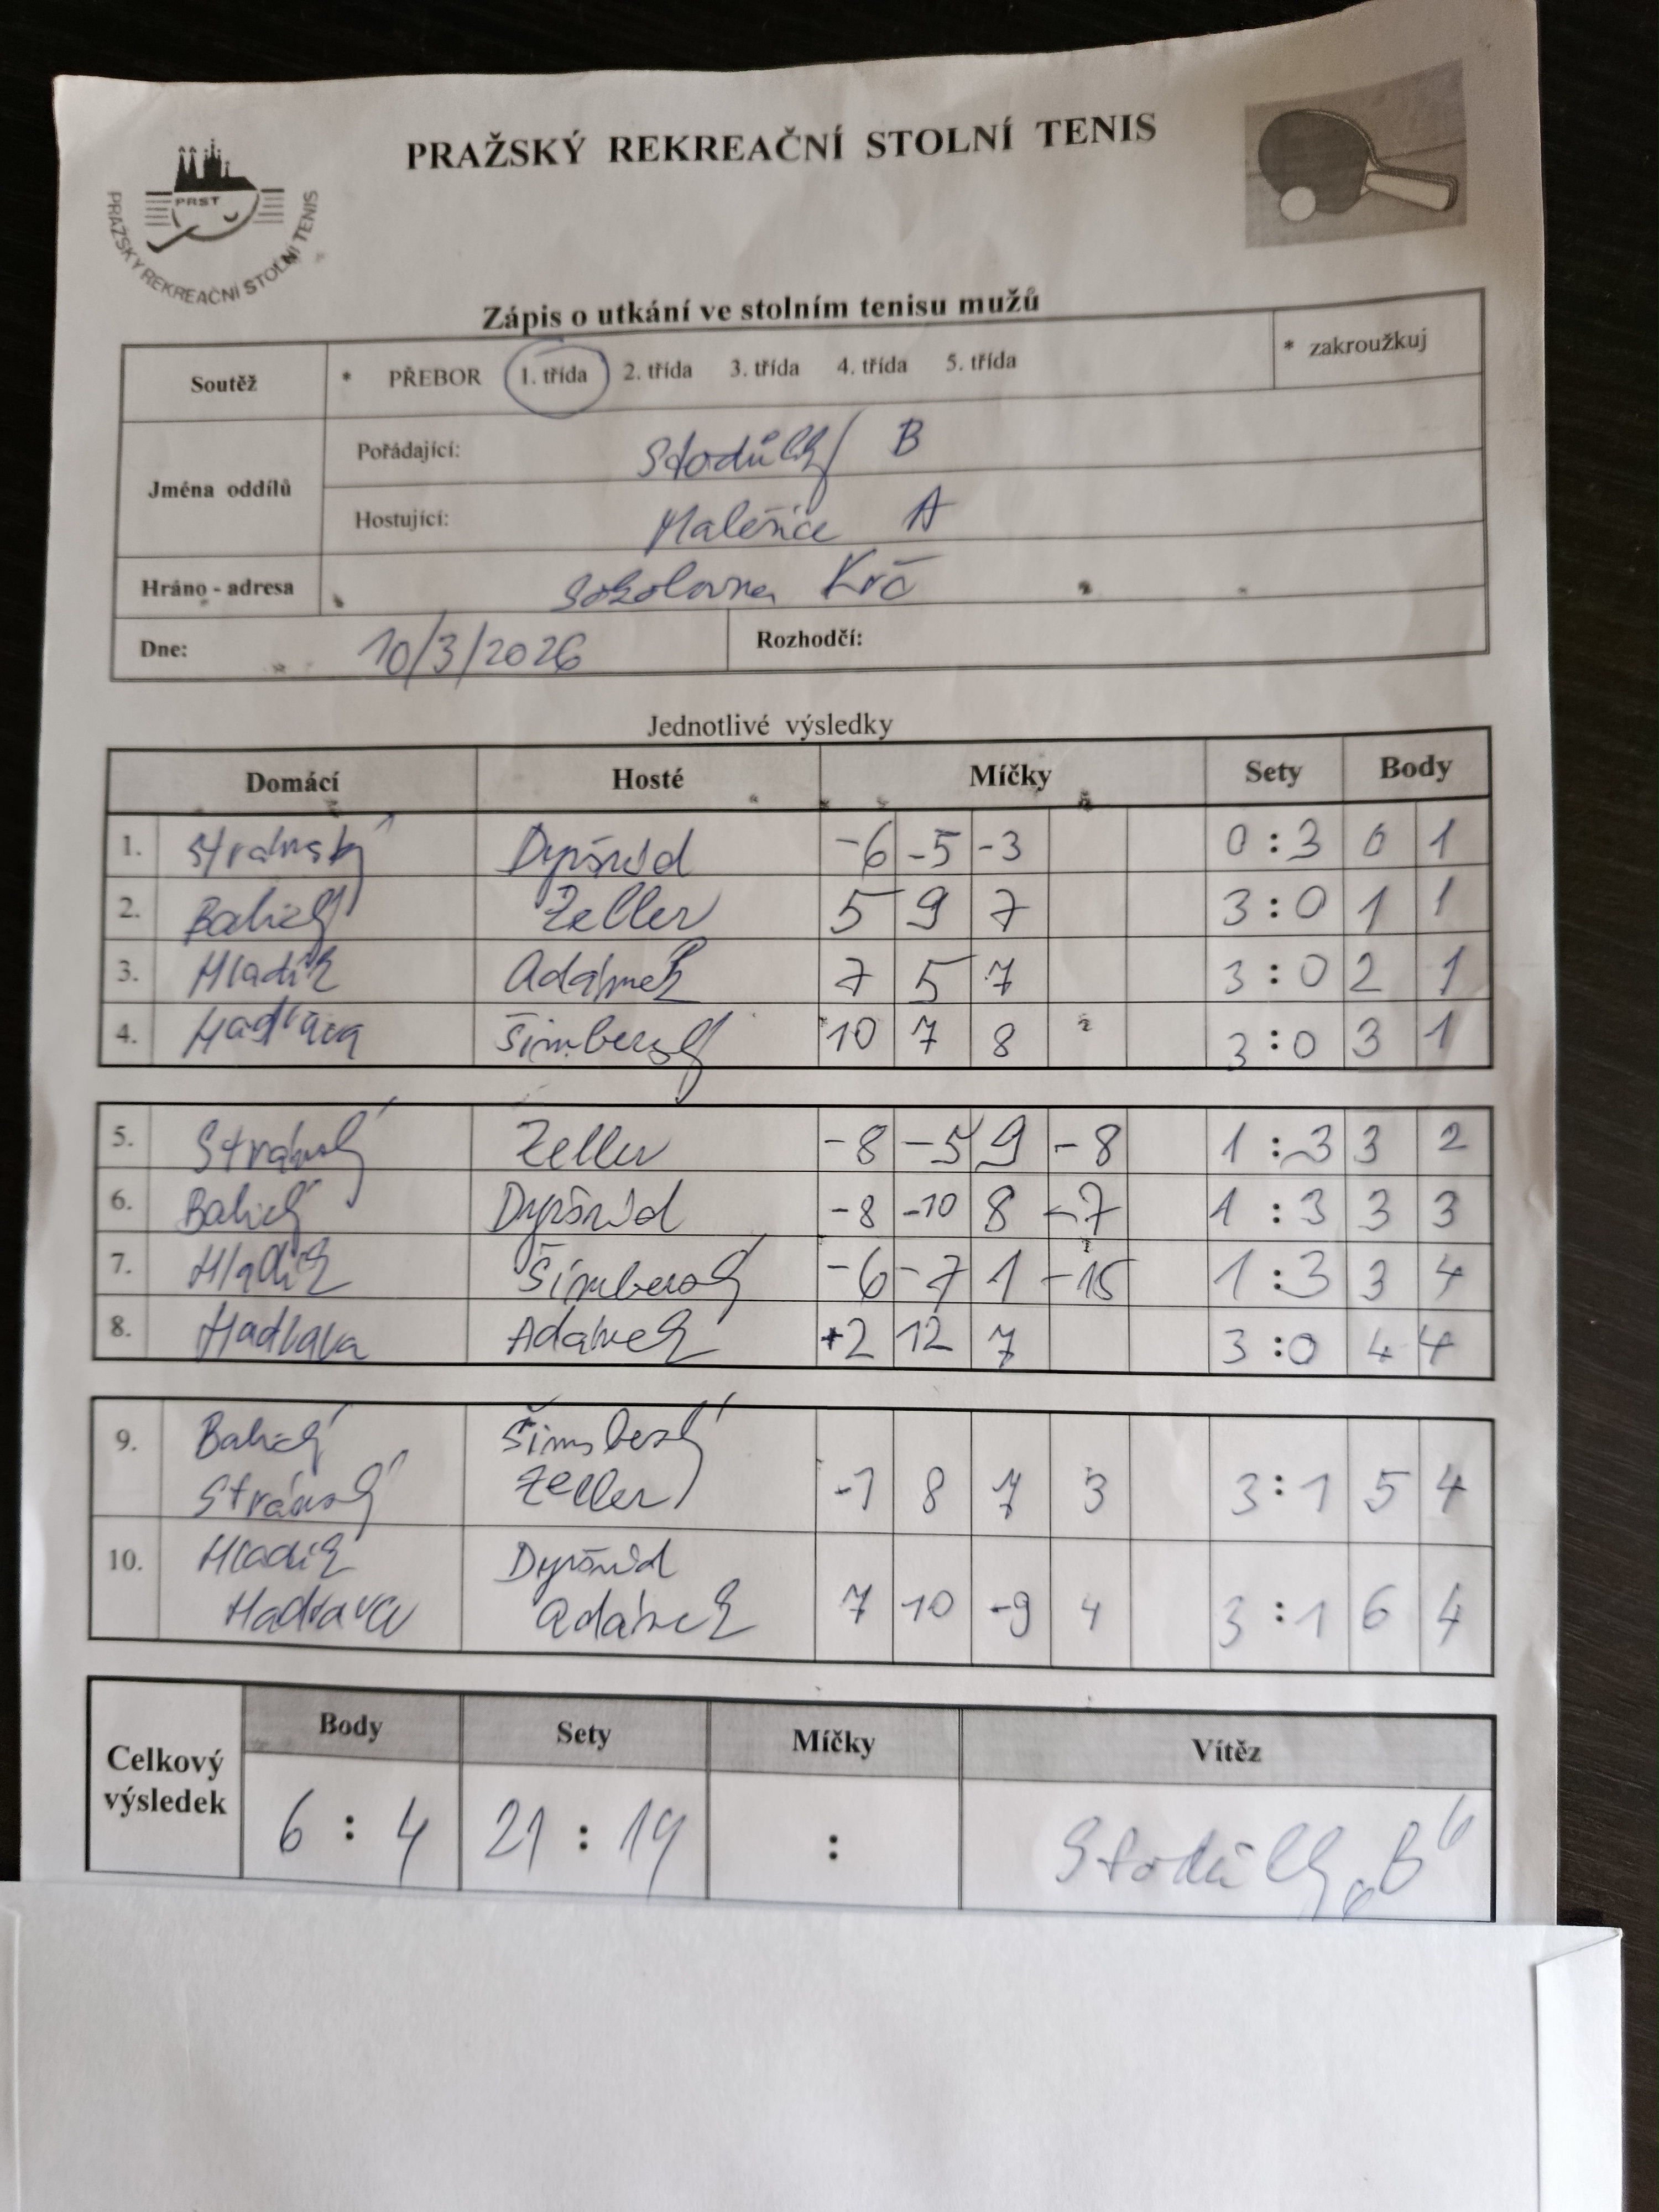 PRAŽSKÝ REKREAČNÍ STOLNÍ TENIS
PRST
PRAŽSKÝ REKREAČNÍ STOLNÍ TENIS
Zápis o utkání ve stolním tenisu mužů
Soutěž * PŘEBOR 1. třída 2. třída 3. třída 4. třída 5. třída * zakroužkuj
Jména oddílů
Pořádající: Stodůlky B
Hostující: Malešice A
Hráno - adresa Sokolovna Krč
Dne: 10/3/2026 Rozhodčí:
Jednotlivé výsledky
Domácí Hosté Míčky Sety Body
1. Stránský Dyršmíd -6 -5 -3 0:3 0 1
2. Balický Zeller 5 9 7 3:0 1 1
3. Hladík Adámek 7 5 7 3:0 2 1
4. Hadrava Šimberský 10 7 8 3:0 3 1
5. Stránský Zeller -8 -5 9 -8 1:3 3 2
6. Balický Dyršmíd -8 -10 8 -7 1:3 3 3
7. Hladík Šimberský -6 -7 1 -15 1:3 3 4
8. Hadrava Adámek +2 12 7 3:0 4 4
9. Balický Šimberský
Stránský Zeller -7 8 7 3 3:1 5 4
10. Hladík Dyršmíd
Hadrava Adámek 7 10 -9 4 3:1 6 4
Celkový výsledek
Body Sety Míčky Vítěz
6 : 4 21 : 14 : Stodůlky „B“